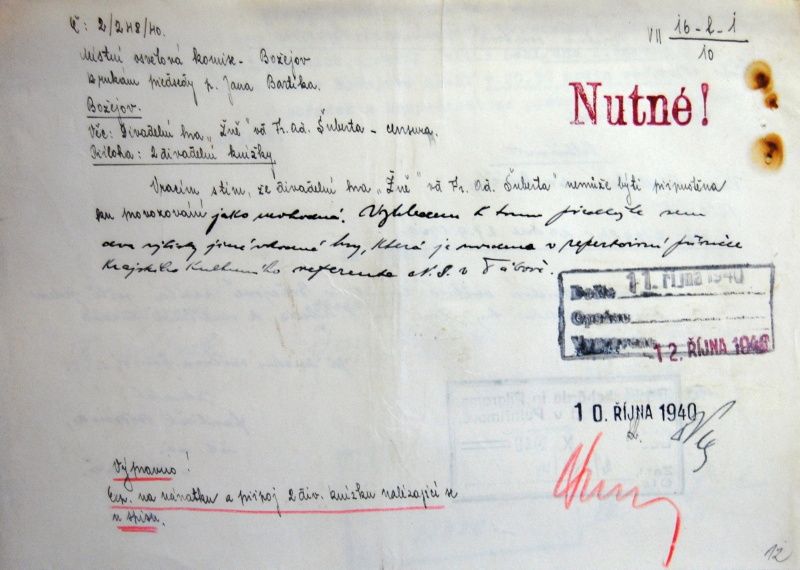 Č: 2/248/40.
VII 16-2-1
10
Místní osvětová komise - Božejov
k rukám předsedy p. Jana Bartíka.
Božejov.
Nutné!
Věc: Divadelní hra „Žně" od Fr. Ad. Šuberta - censura.
Příloha: 2 divadelní knížky.
Vracím s tím, že divadelní hra „Žně" od Fr. Ad. Šuberta" nemůže býti připuštěna
ku provozování jako nevhodná. Vzhledem k tomu předložte sem
dva výtisky jiné vhodné hry, která je uvedena v repertoirní příručce
Krajského kulturního referenta N.S. v Táboře.
Došlo 11. října 1940
Opsáno
Vypraveno 12. ŘÍJNA 1940
10. ŘÍJNA 1940
Výpravno!
Exp. na obrátku a připoj 2 div. knížky nalézající se
u spisu.
12